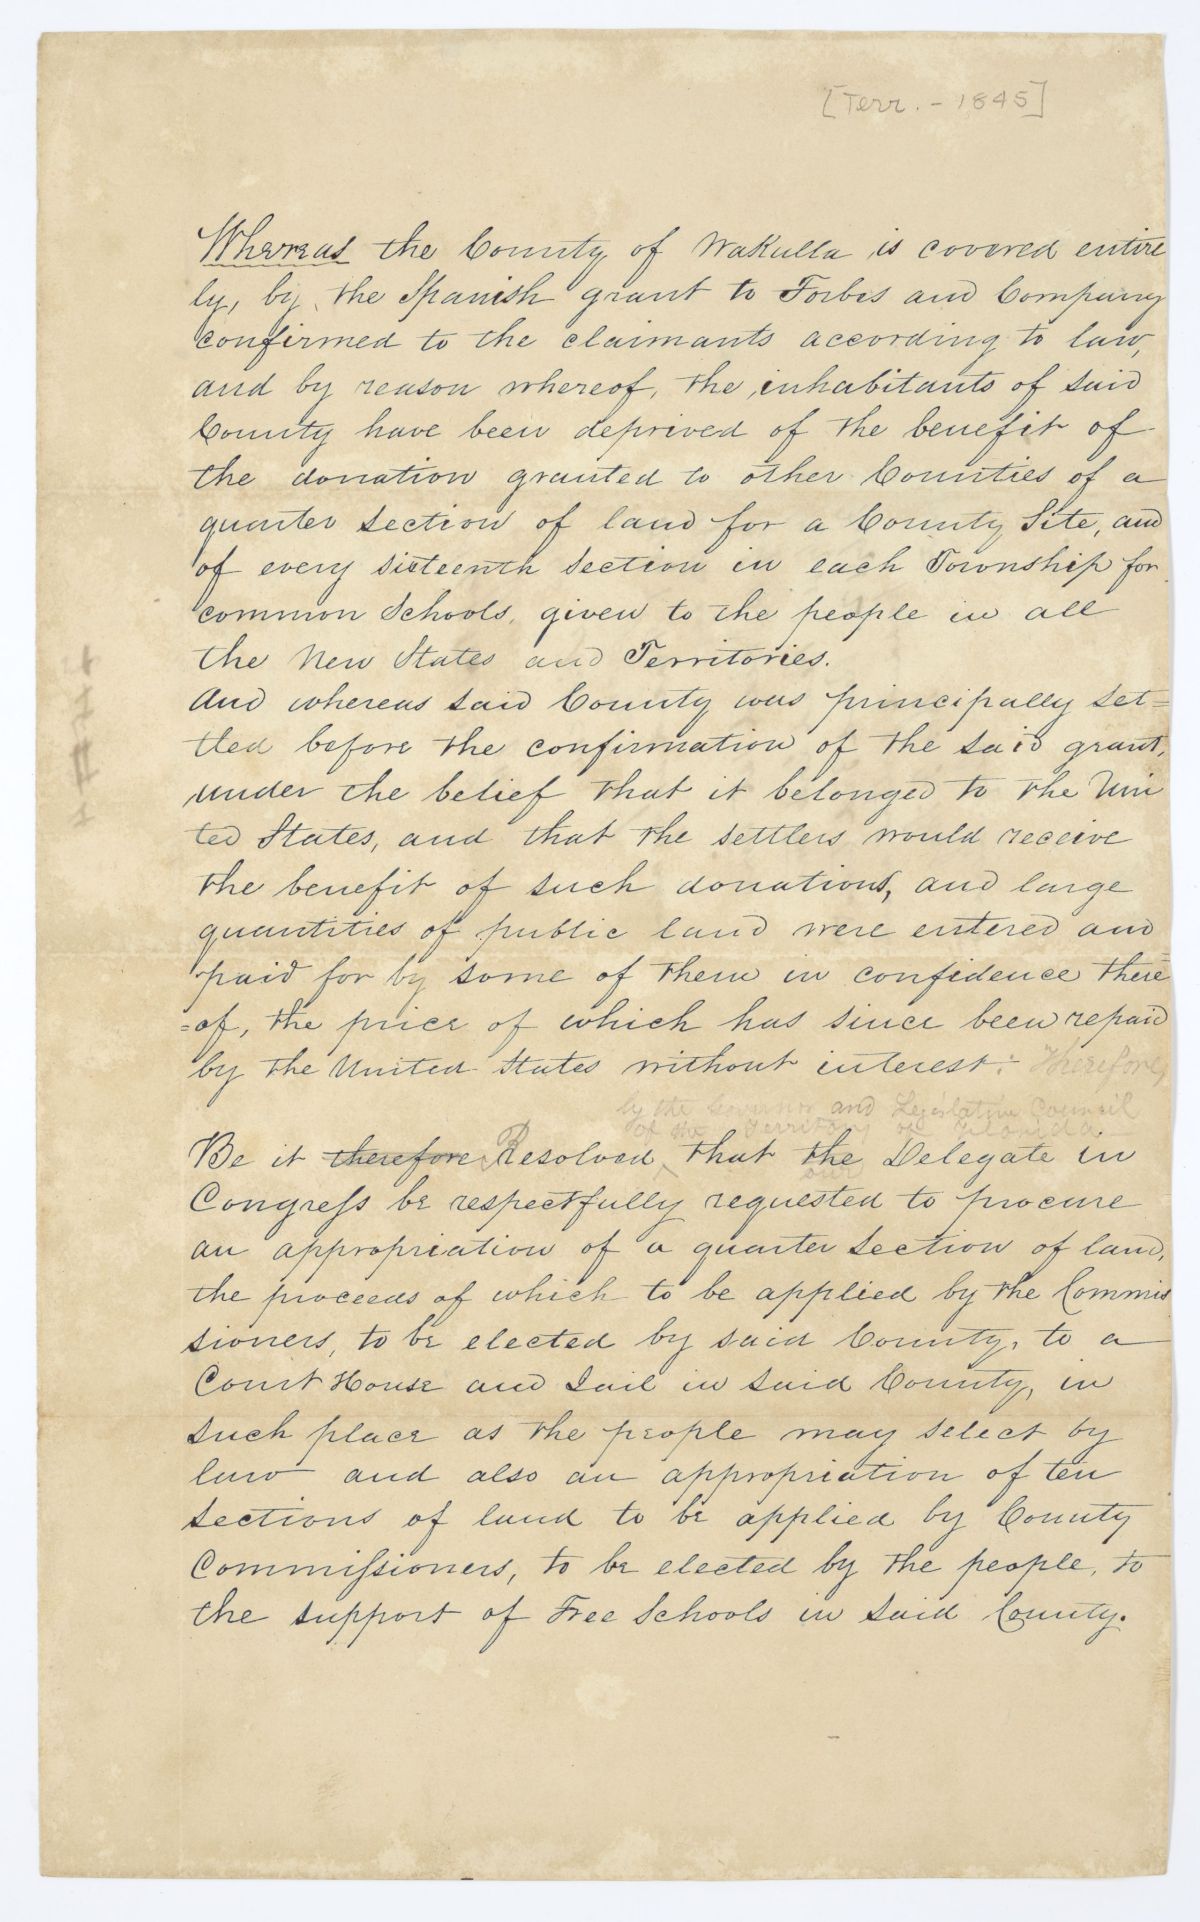 [Terr. - 1845]
Whereas the County of Wakulla is covered entire
ly, by the Spanish grant to Forbes and Company
confirmed to the claimants according to law,
and by reason whereof, the inhabitants of said
County have been deprived of the benefit of
the donation granted to other Counties of a
quarter section of land for a County Site, and
of every sixteenth section in each Township for
common Schools, given to the people in all
the New States and Territories.
And whereas said County was principally set=
tled before the confirmation of the said grant,
under the belief that it belonged to the Uni
ted States, and that the settlers would receive
the benefit of such donations, and large
quantities of public land were entered and
paid for by some of them in confidence there
=of, the price of which has since been repaid
by the United States without interest: Therefore,
by the Governor and Legislative Council
of the Territory of Florida
Be it therefore Resolved, that the Delegate in
our
Congress be respectfully requested to procure
an appropriation of a quarter section of land,
the proceeds of which to be applied by the Commis
sioners, to be elected by said County, to a
Court House and Jail in said County, in
such place as the people may select by
law and also an appropriation of ten
sections of land to be applied by County
Commissioners, to be elected by the people, to
the support of Free Schools in said County.